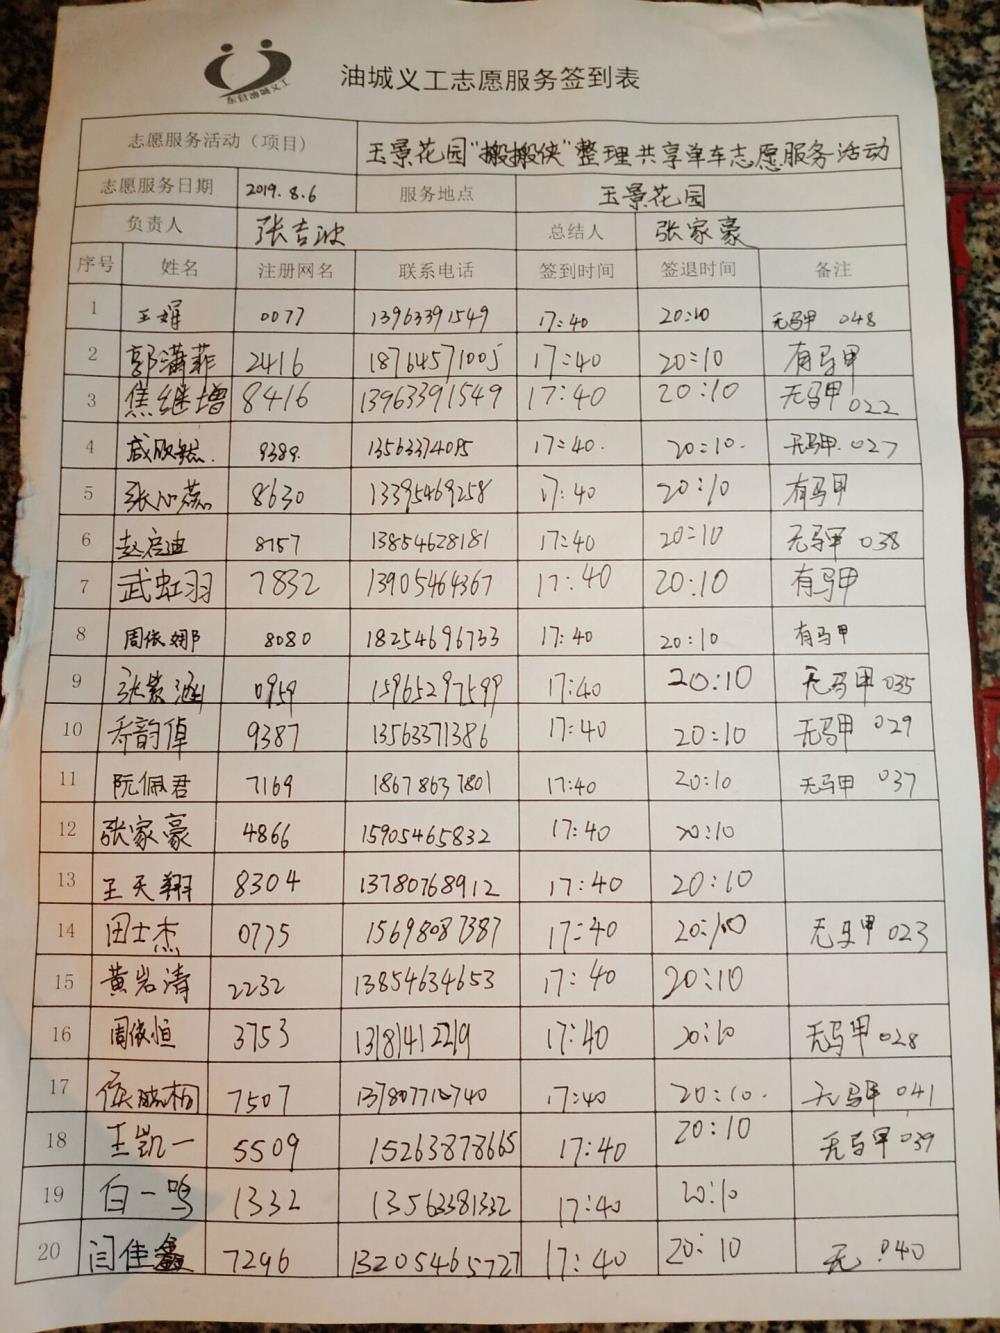 东营油城义工
油城义工志愿服务签到表
志愿服务活动（项目） 玉景花园“搬搬侠”整理共享单车志愿服务活动
志愿服务日期 2019.8.6 服务地点 玉景花园
负责人 张吉波 总结人 张家豪
序号 姓名 注册网名 联系电话 签到时间 签退时间 备注
1 王娟 0077 13963391549 17:40 20:10 无马甲 048
2 郭潇菲 2416 18764571005 17:40 20:10 有马甲
3 焦继增 8416 13963391549 17:40 20:10 无马甲 022
4 9389. 17:40. 20:10. 无马甲. 027
5 张心蕊 8630 13395469258 17:40 20:10 有马甲
6 赵启迪 8157 13854628181 17:40 20:10 无马甲 038
7 武虹羽 7832 13905464367 17:40 20:10 有马甲
8 周依娜 8080 18254696733 17:40 20:10 有马甲
9 张紫涵 0959 15965297599 17:40 20:10 无马甲 035
10 乔韵倬 9387 13563371386 17:40 20:10 无马甲 029
11 阮佩君 7169 18678637801 17:40 20:10 无马甲 037
12 张家豪 4866 15905465832 17:40 20:10
13 王天翔 8304 13780768912 17:40 20:10
14 田士杰 0775 15698087387 17:40 20:10 无马甲 023
15 黄岩清 2232 13854634653 17:40 20:10
16 周依恒 3753 13181412219 17:40 20:10 无马甲 028
17 7507 13780771740 17:40 20:10. 无马甲 041
18 王凯一 5509 15263878665 17:40 20:10 无马甲 039
19 白一鸣 1332 13563381332 17:40 20:10
20 闫佳鑫 7296 13205465727 17:40 20:10 无 040